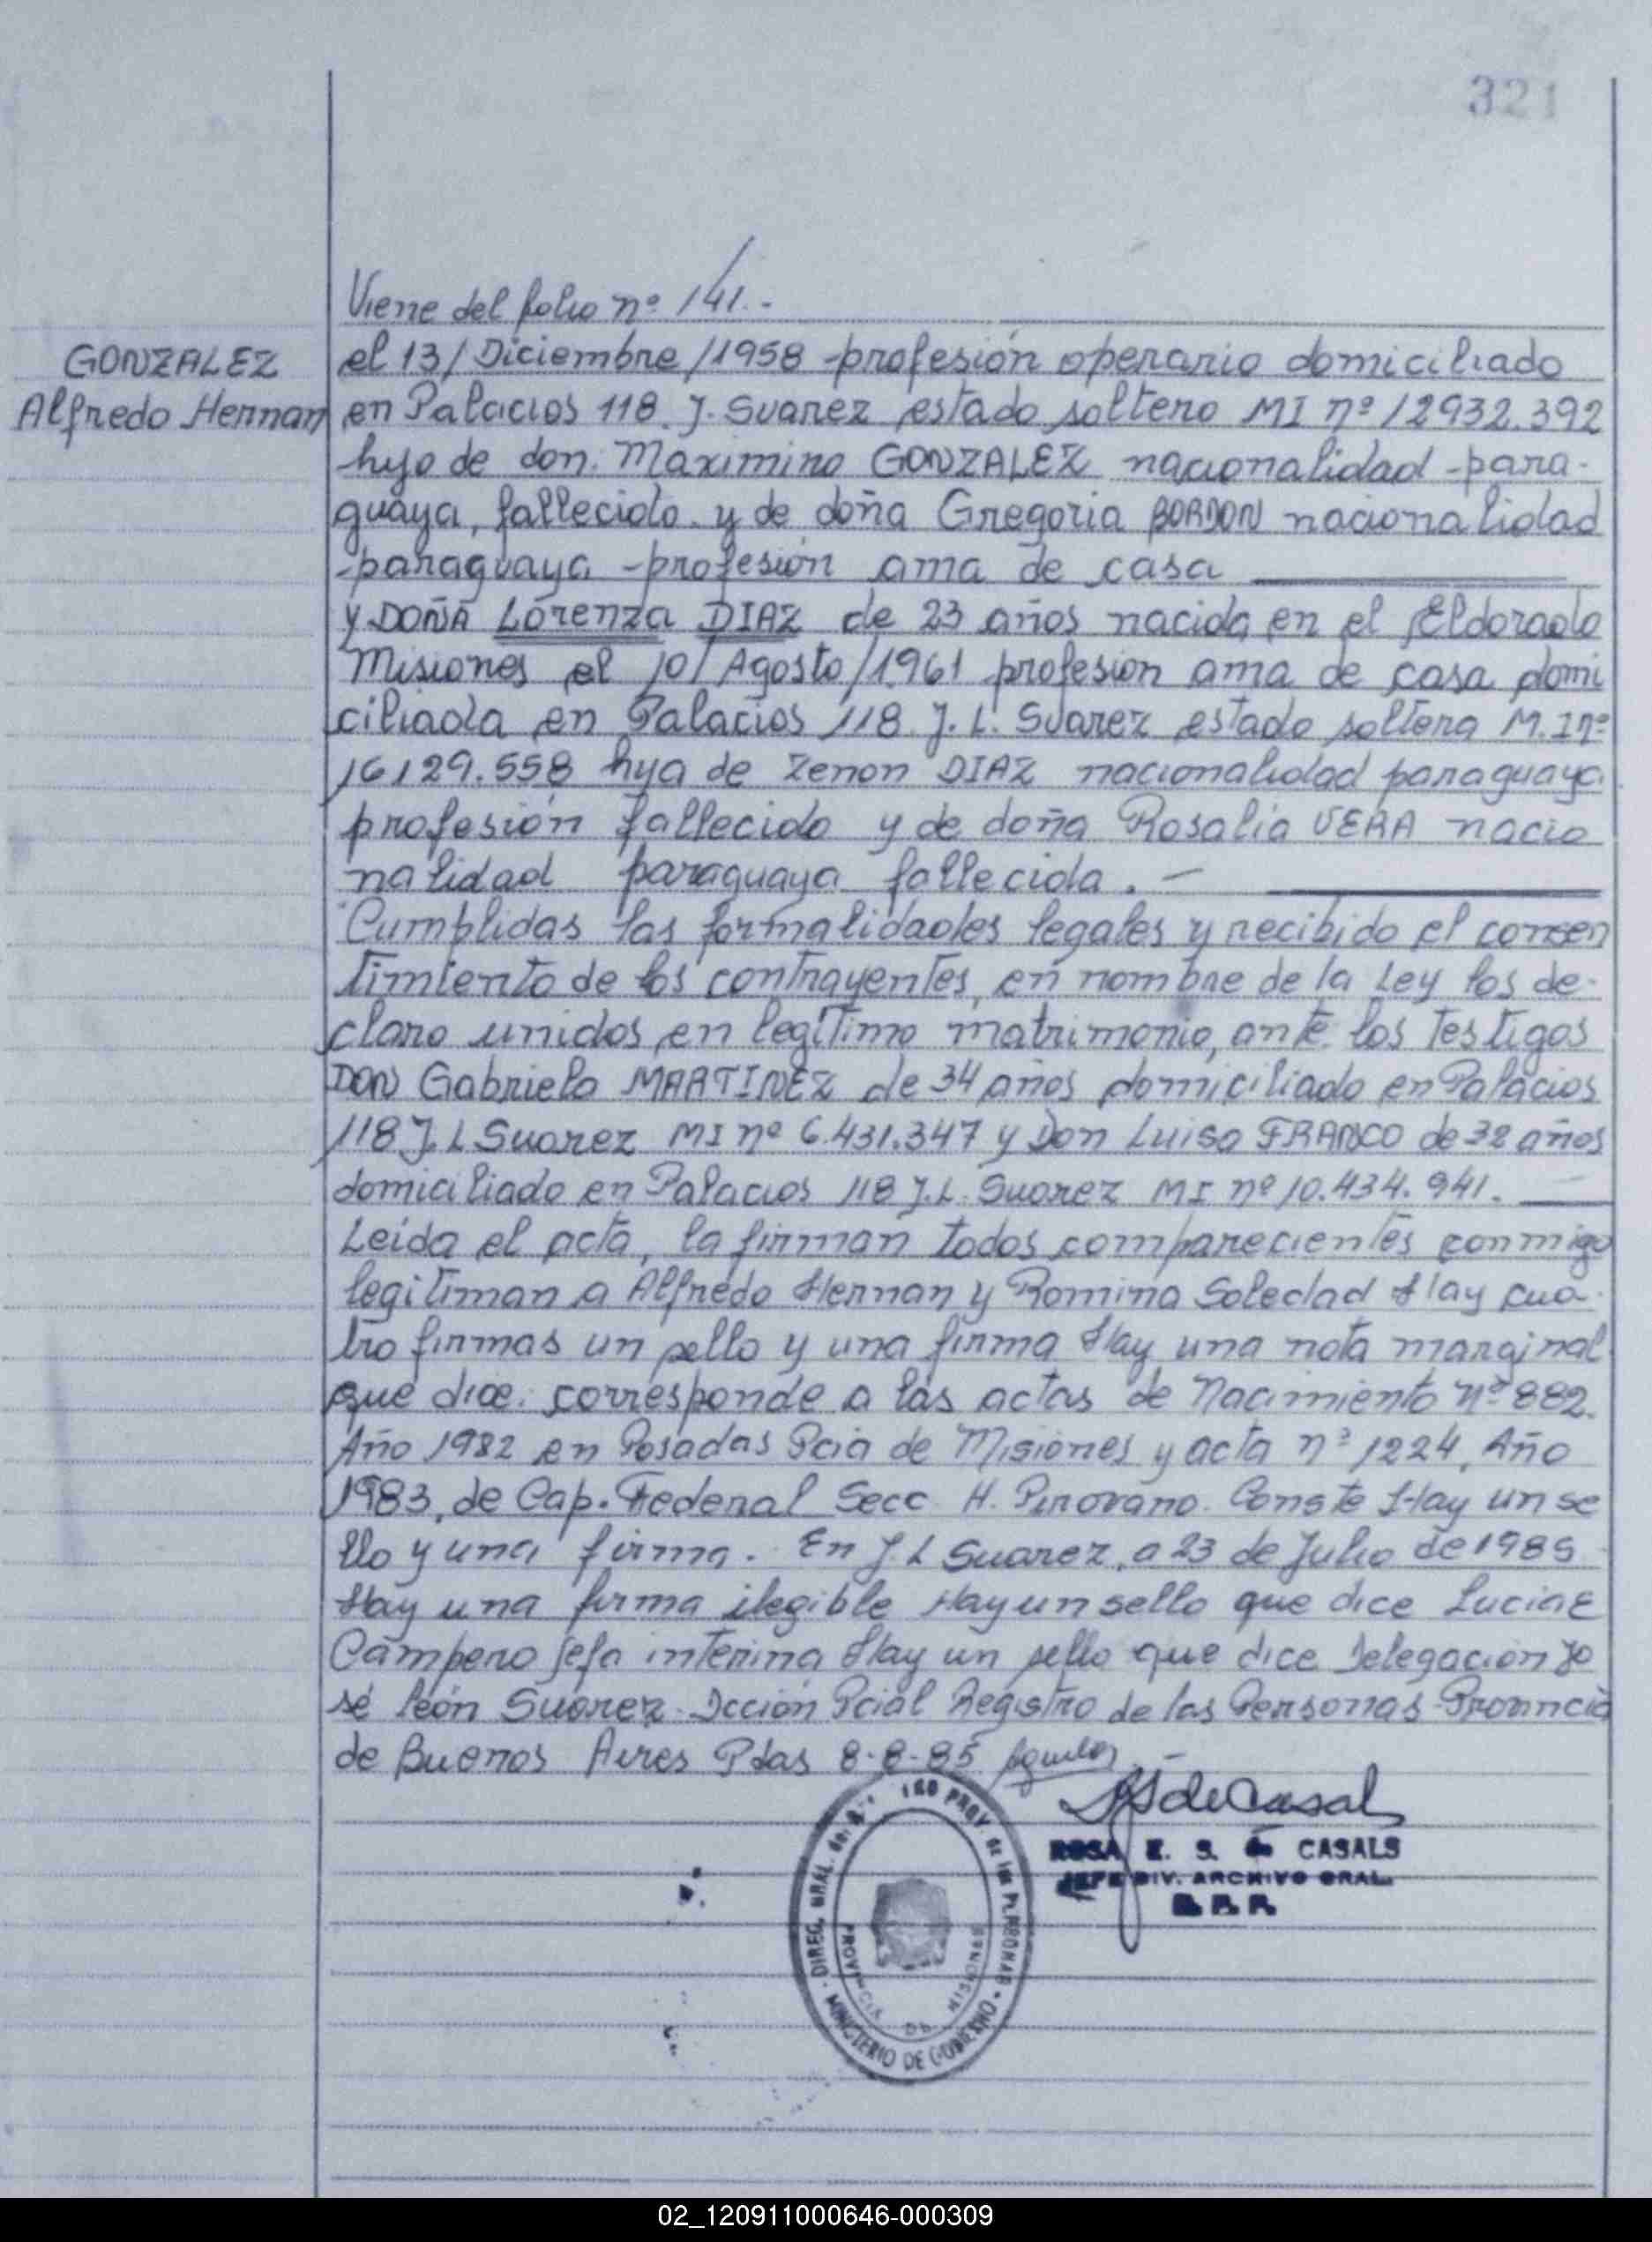 321
Viene del folio nº 141.-
GONZALEZ
Alfredo Hernan
el 13/Diciembre/1958 profesión operario domiciliado
en Palacios 118 J. Suarez estado soltero MI nº 12932.392
hijo de don Maximino GONZALEZ nacionalidad para-
guaya, fallecido y de doña Gregoria BORDON nacionalidad
paraguaya profesión ama de casa
y DOÑA Lorenza DIAZ de 23 años nacida en el Eldorado
Misiones el 10/Agosto/1961 profesion ama de casa domi
ciliada en Palacios 118 J. L. Suarez estado soltera M.I nº
16129.558 hija de Zenon DIAZ nacionalidad paraguaya
profesión fallecido y de doña Rosalia VERA nacio
nalidad paraguaya fallecida. -
Cumplidas las formalidades legales y recibido el consen
timiento de los contrayentes, en nombre de la Ley los de-
claro unidos en legítimo matrimonio, ante los Testigos
DON Gabriela MARTINEZ de 34 años domiciliado en Palacios
118 J. L Suarez MI nº 6.431.347 y Don Luisa FRANCO de 32 años
domiciliado en Palacios 118 J.L. Suarez MI nº 10.434.941.
Leída el acta, la firman todos comparecientes conmigo
legitiman a Alfredo Hernan y Romina Soledad Hay cua-
tro firmas un sello y una firma Hay una nota marginal
que dice: corresponde a las actas de Nacimiento nº 882.
Año 1982 en Posadas Pcia de Misiones y acta nº 1224, Año
1983, de Cap. Federal Secc H. Pirovano. Conste Hay un se
llo y una firma. En J L Suarez, a 23 de Julio de 1985
Hay una firma ilegible Hay un sello que dice Lucia E
Campero Jefa interina Hay un sello que dice Delegacion Jo
sé León Suárez Dcción Pcial Registro de las Personas Provincia
de Buenos Aires Pdas 8-8-85
RS de Casal
ROSA E. S. de CASALS
JEFE DIV. ARCHIVO GRAL.
R. P. P.
DIREC. GRAL. del REGISTRO PROV de las PERSONAS
PROVINCIA DE MISIONES
MINISTERIO DE GOBIERNO
02_120911000646-000309